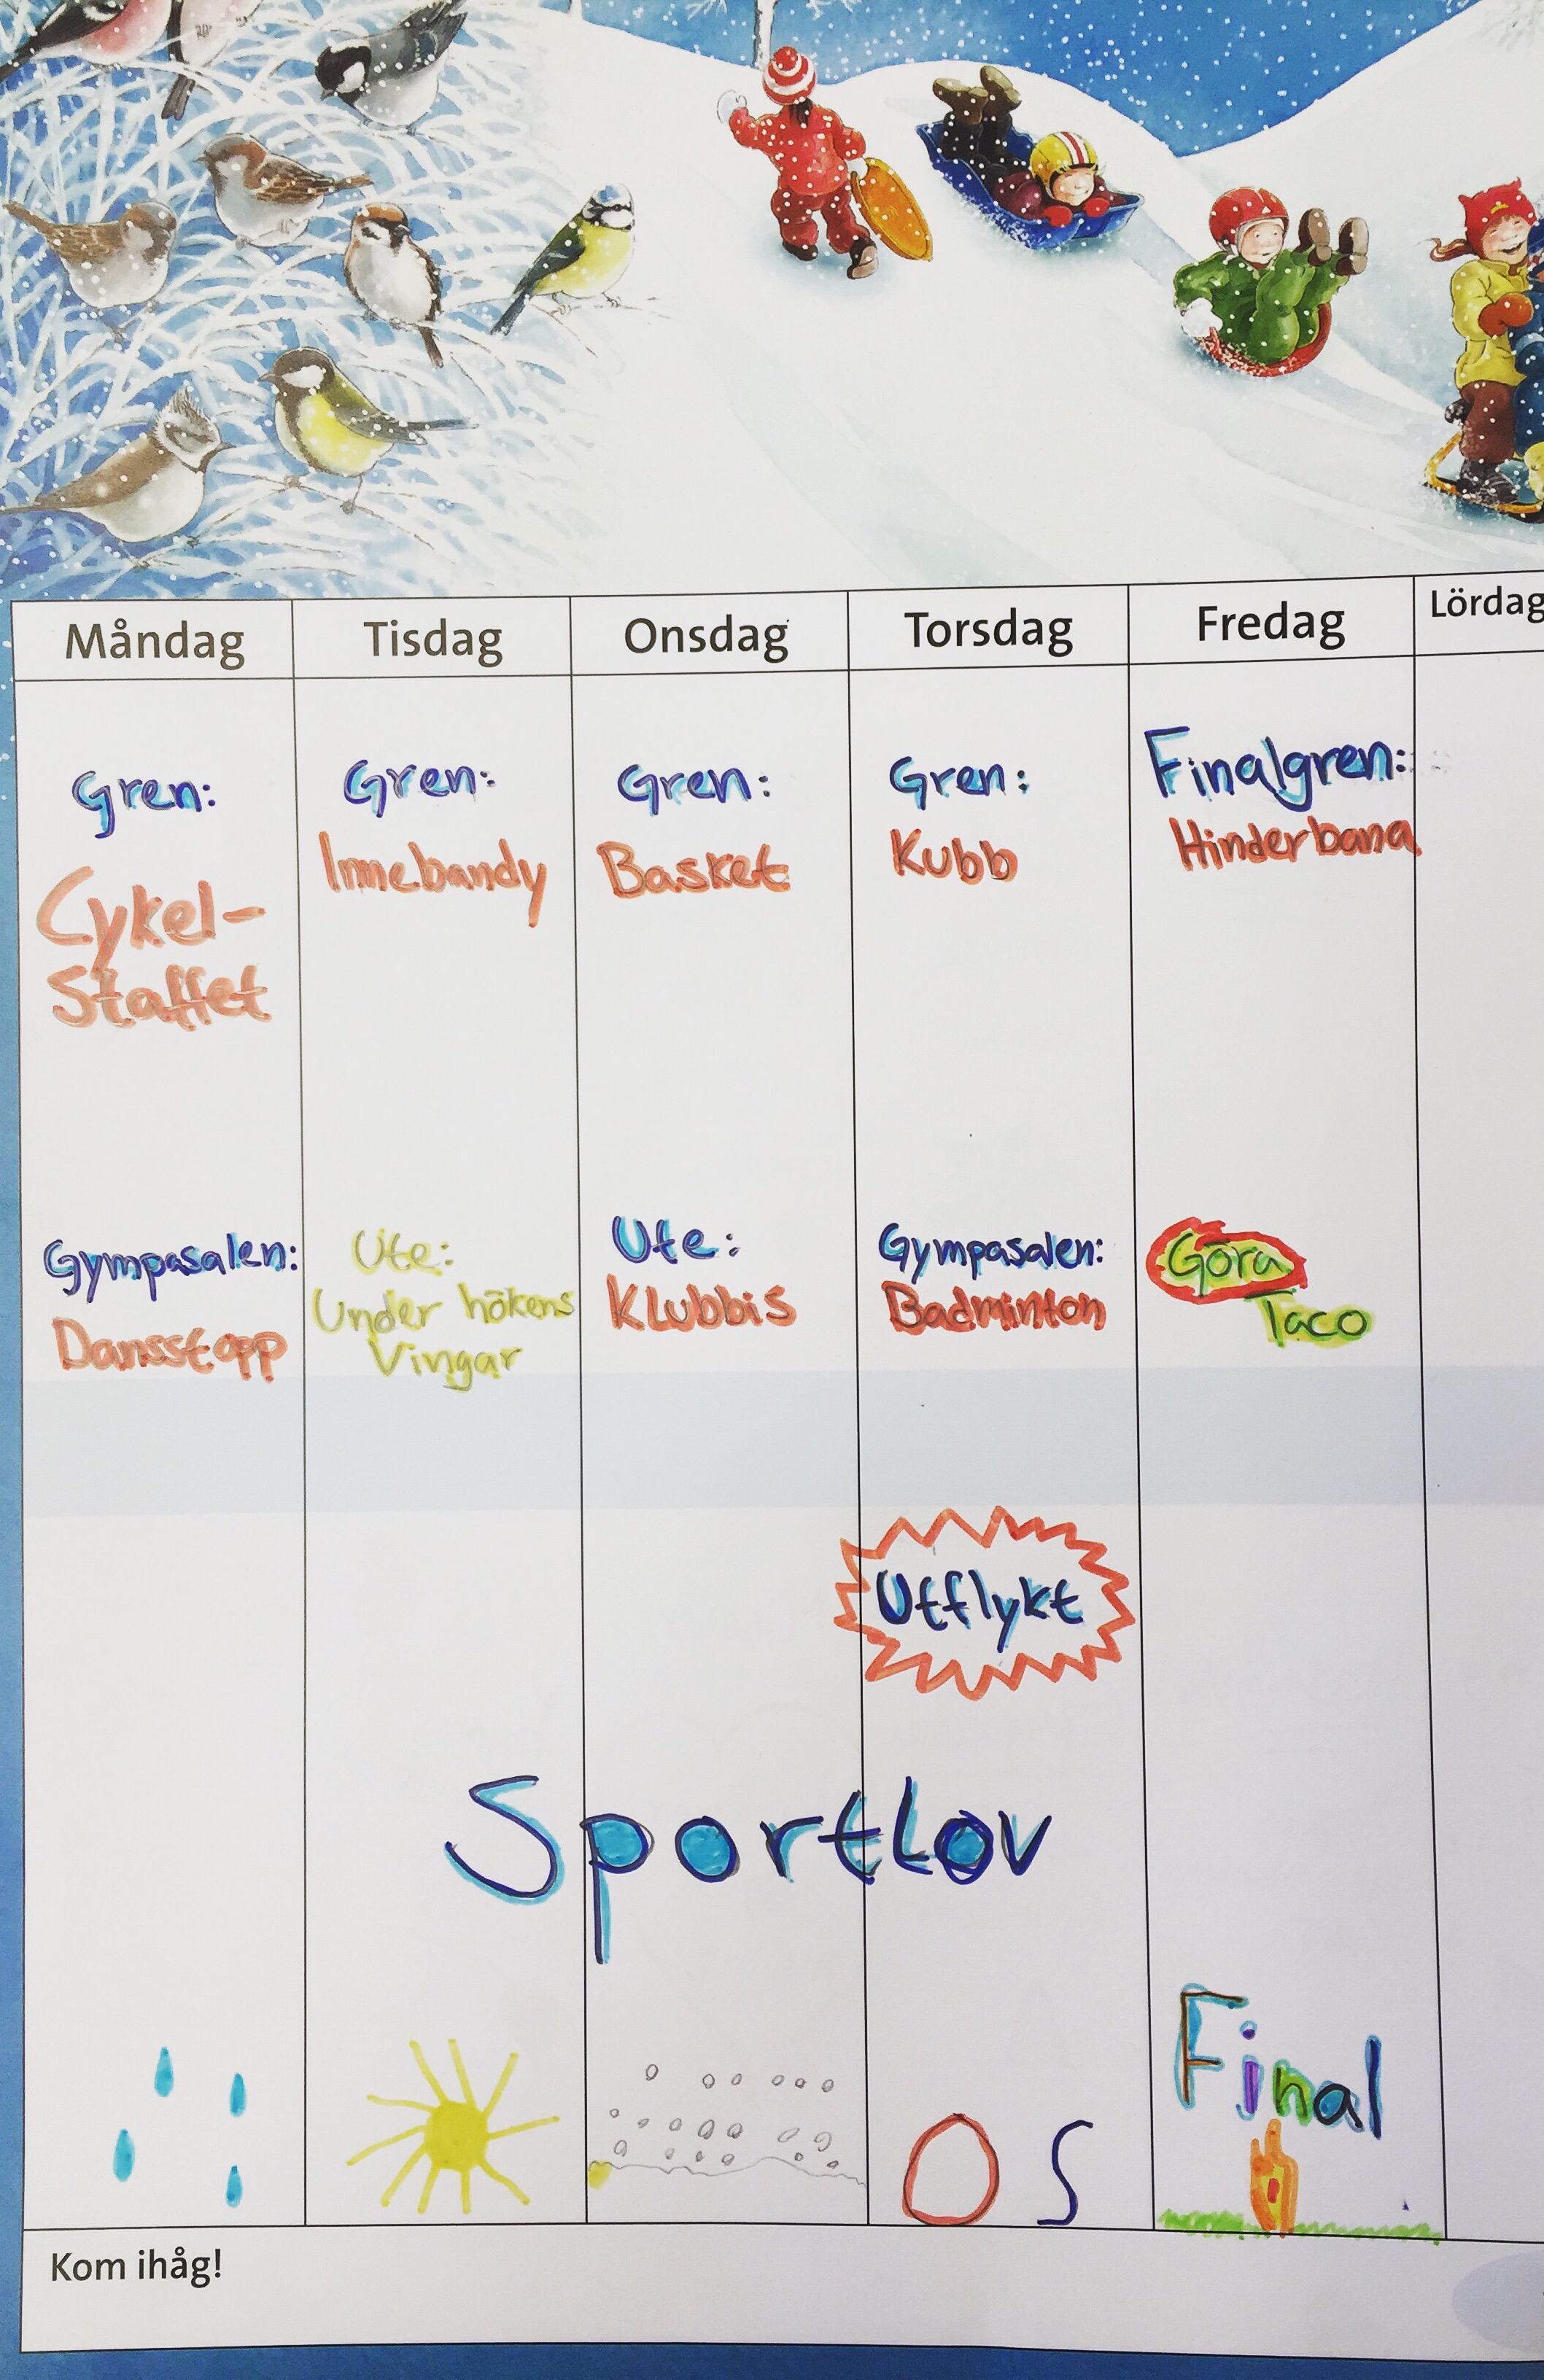 Måndag
Tisdag
Onsdag
Torsdag
Fredag
Lördag
Gren:
Cykel-
Staffet
Gren:
Innebandy
Gren:
Basket
Gren:
Kubb
Finalgren:
Hinderbana
Gympasalen:
Dansstopp
Ute:
Under hökens
Vingar
Ute:
Klubbis
Gympasalen:
Badminton
Göra
Taco
Utflykt
Sportlov
OS
Final
Kom ihåg!